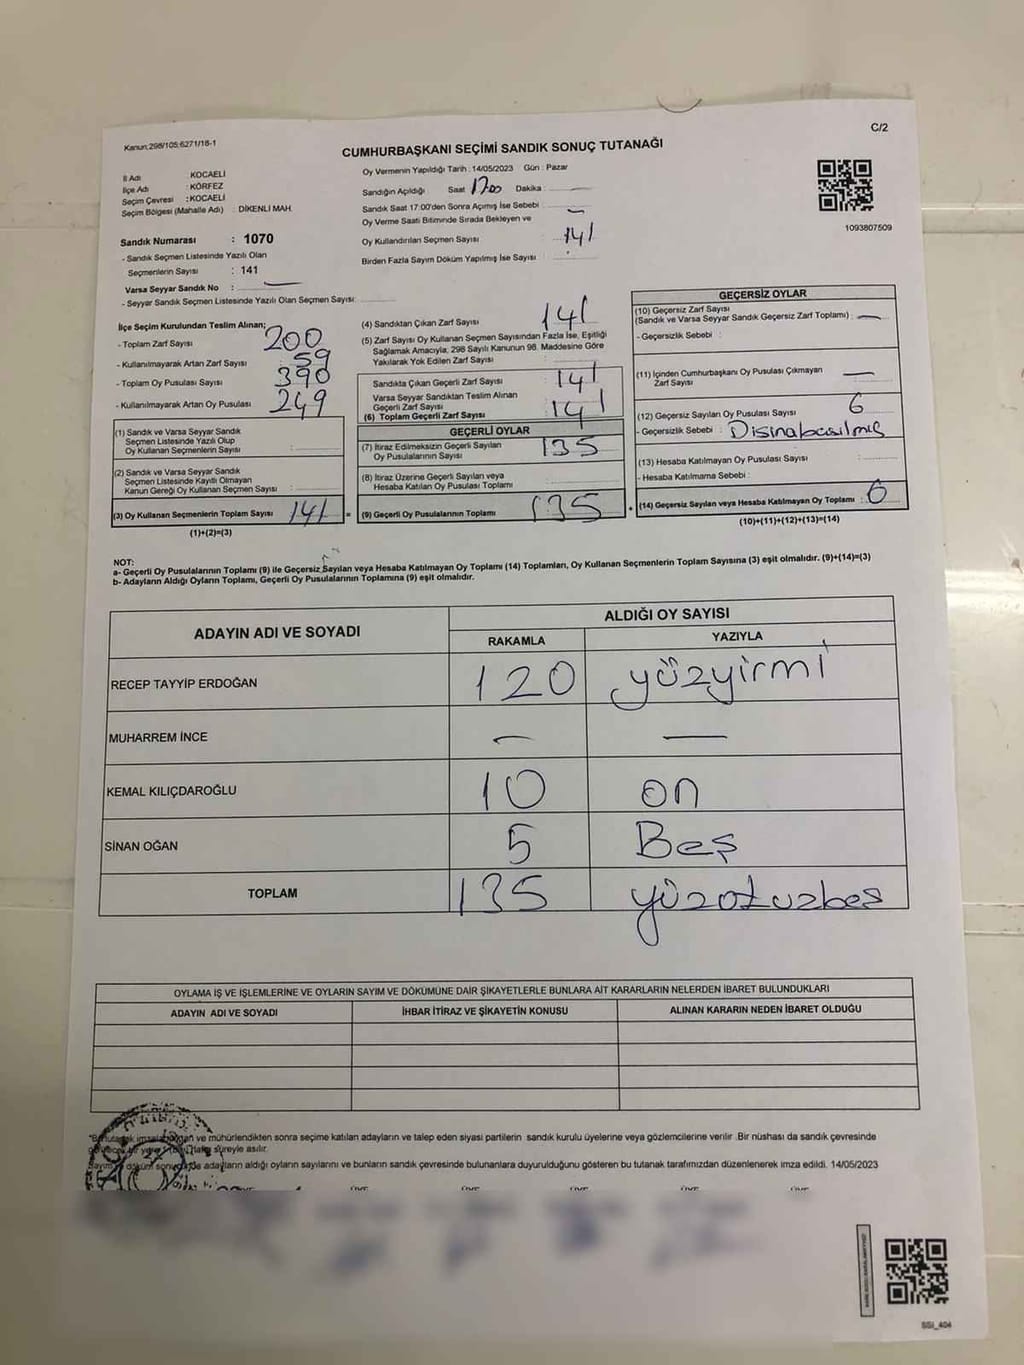 C/2
Kanun:298/105;6271/18-1
CUMHURBAŞKANI SEÇİMİ SANDIK SONUÇ TUTANAĞI
İl Adı : KOCAELİ
İlçe Adı : KÖRFEZ
Seçim Çevresi : KOCAELİ
Seçim Bölgesi (Mahalle Adı) : DİKENLİ MAH.
Sandık Numarası : 1070
- Sandık Seçmen Listesinde Yazılı Olan
Seçmenlerin Sayısı : 141
Varsa Seyyar Sandık No : —
- Seyyar Sandık Seçmen Listesinde Yazılı Olan Seçmen Sayısı:
Oy Vermenin Yapıldığı Tarih : 14/05/2023 Gün : Pazar
Sandığın Açıldığı Saat 1700 Dakika : —
Sandık Saat 17:00'den Sonra Açımış İse Sebebi : —
Oy Verme Saati Bitiminde Sırada Bekleyen ve
Oy Kullandırılan Seçmen Sayısı : 141
Birden Fazla Sayım Döküm Yapılmış İse Sayısı :
1093807509
İlçe Seçim Kurulundan Teslim Alınan;
- Toplam Zarf Sayısı : 200
- Kullanılmayarak Artan Zarf Sayısı : 59
- Toplam Oy Pusulası Sayısı : 390
- Kullanılmayarak Artan Oy Pusulası : 249
(1) Sandık ve Varsa Seyyar Sandık
Seçmen Listesinde Yazılı Olup
Oy Kullanan Seçmenlerin Sayısı :
(2) Sandık ve Varsa Seyyar Sandık
Seçmen Listesinde Kayıtlı Olmayan
Kanun Gereği Oy Kullanan Seçmen Sayısı :
(3) Oy Kullanan Seçmenlerin Toplam Sayısı 141 =
(1)+(2)=(3)
(4) Sandıktan Çıkan Zarf Sayısı 141
(5) Zarf Sayısı Oy Kullanan Seçmen Sayısından Fazla İse, Eşitliği
Sağlamak Amacıyla, 298 Sayılı Kanunun 98. Maddesine Göre
Yakılarak Yok Edilen Zarf Sayısı :
Sandıkta Çıkan Geçerli Zarf Sayısı : 141
Varsa Seyyar Sandıktan Teslim Alınan
Geçerli Zarf Sayısı :
(6) Toplam Geçerli Zarf Sayısı : 141
GEÇERLİ OYLAR
(7) İtiraz Edilmeksizin Geçerli Sayılan
Oy Pusulalarının Sayısı : 135
(8) İtiraz Üzerine Geçerli Sayılan veya
Hesaba Katılan Oy Pusulası Toplamı :
(9) Geçerli Oy Pusulalarının Toplamı : 135 +
GEÇERSİZ OYLAR
(10) Geçersiz Zarf Sayısı
(Sandık ve Varsa Seyyar Sandık Geçersiz Zarf Toplamı) : —
- Geçersizlik Sebebi :
(11) İçinden Cumhurbaşkanı Oy Pusulası Çıkmayan
Zarf Sayısı —
(12) Geçersiz Sayılan Oy Pusulası Sayısı : 6
- Geçersizlik Sebebi : Disinabasilmış
(13) Hesaba Katılmayan Oy Pusulası Sayısı :
- Hesaba Katılmama Sebebi :
(14) Geçersiz Sayılan veya Hesaba Katılmayan Oy Toplamı : 6
(10)+(11)+(12)+(13)=(14)
NOT:
a- Geçerli Oy Pusulalarının Toplamı (9) ile Geçersiz Sayılan veya Hesaba Katılmayan Oy Toplamı (14) Toplamları, Oy Kullanan Seçmenlerin Toplam Sayısına (3) eşit olmalıdır. (9)+(14)=(3)
b- Adayların Aldığı Oyların Toplamı, Geçerli Oy Pusulalarının Toplamına (9) eşit olmalıdır.
ADAYIN ADI VE SOYADI
ALDIĞI OY SAYISI
RAKAMLA YAZIYLA
RECEP TAYYİP ERDOĞAN 120 yüzyirmi
MUHARREM İNCE — —
KEMAL KILIÇDAROĞLU 10 on
SİNAN OĞAN 5 Beş
TOPLAM 135 yüzotuzbeş
OYLAMA İŞ VE İŞLEMLERİNE VE OYLARIN SAYIM VE DÖKÜMÜNE DAİR ŞİKAYETLERLE BUNLARA AİT KARARLARIN NELERDEN İBARET BULUNDUKLARI
ADAYIN ADI VE SOYADI İHBAR İTİRAZ VE ŞİKAYETİN KONUSU ALINAN KARARIN NEDEN İBARET OLDUĞU
ve mühürlendikten sonra seçime katılan adayların ve talep eden siyasi partilerin sandık kurulu üyelerine veya gözlemcilerine verilir .Bir nüshası da sandık çevresinde
süreyle asılır.
adayların aldığı oyların sayılarını ve bunların sandık çevresinde bulunanlara duyurulduğunu gösteren bu tutanak tarafımızdan düzenlenerek imza edildi. 14/05/2023
SSI_404